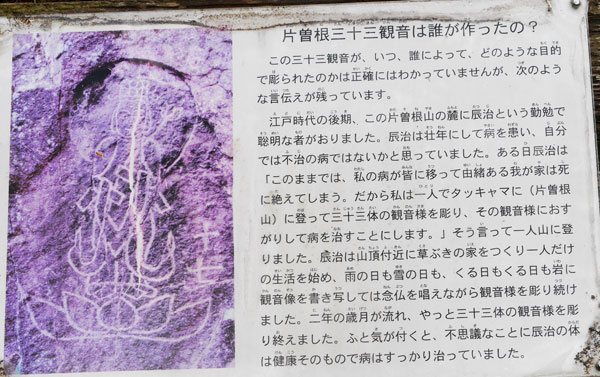 片曽根三十三観音は誰が作ったの？
この三十三観音が、いつ、誰によって、どのような目的
で彫られたのかは正確にはわかっていませんが、次のよう
な言伝えが残っています。
江戸時代の後期、この片曽根山の麓に辰治という勤勉で
聡明な者がおりました。辰治は壮年にして病を患い、自分
では不治の病ではないかと思っていました。ある日辰治は
「このままでは、私の病が皆に移って由緒ある我が家は死
に絶えてしまう。だから私は一人でタッキャマに（片曽根
山）に登って三十三体の観音様を彫り、その観音様におす
がりして病を治すことにします。」そう言って一人山に登
りました。辰治は山頂付近に草ぶきの家をつくり一人だけ
の生活を始め、雨の日も雪の日も、くる日もくる日も岩に
観音像を書き写しては念仏を唱えながら観音様を彫り続け
ました。二年の歳月が流れ、やっと三十三体の観音様を彫
り終えました。ふと気が付くと、不思議なことに辰治の体
は健康そのもので病はすっかり治っていました。
十七